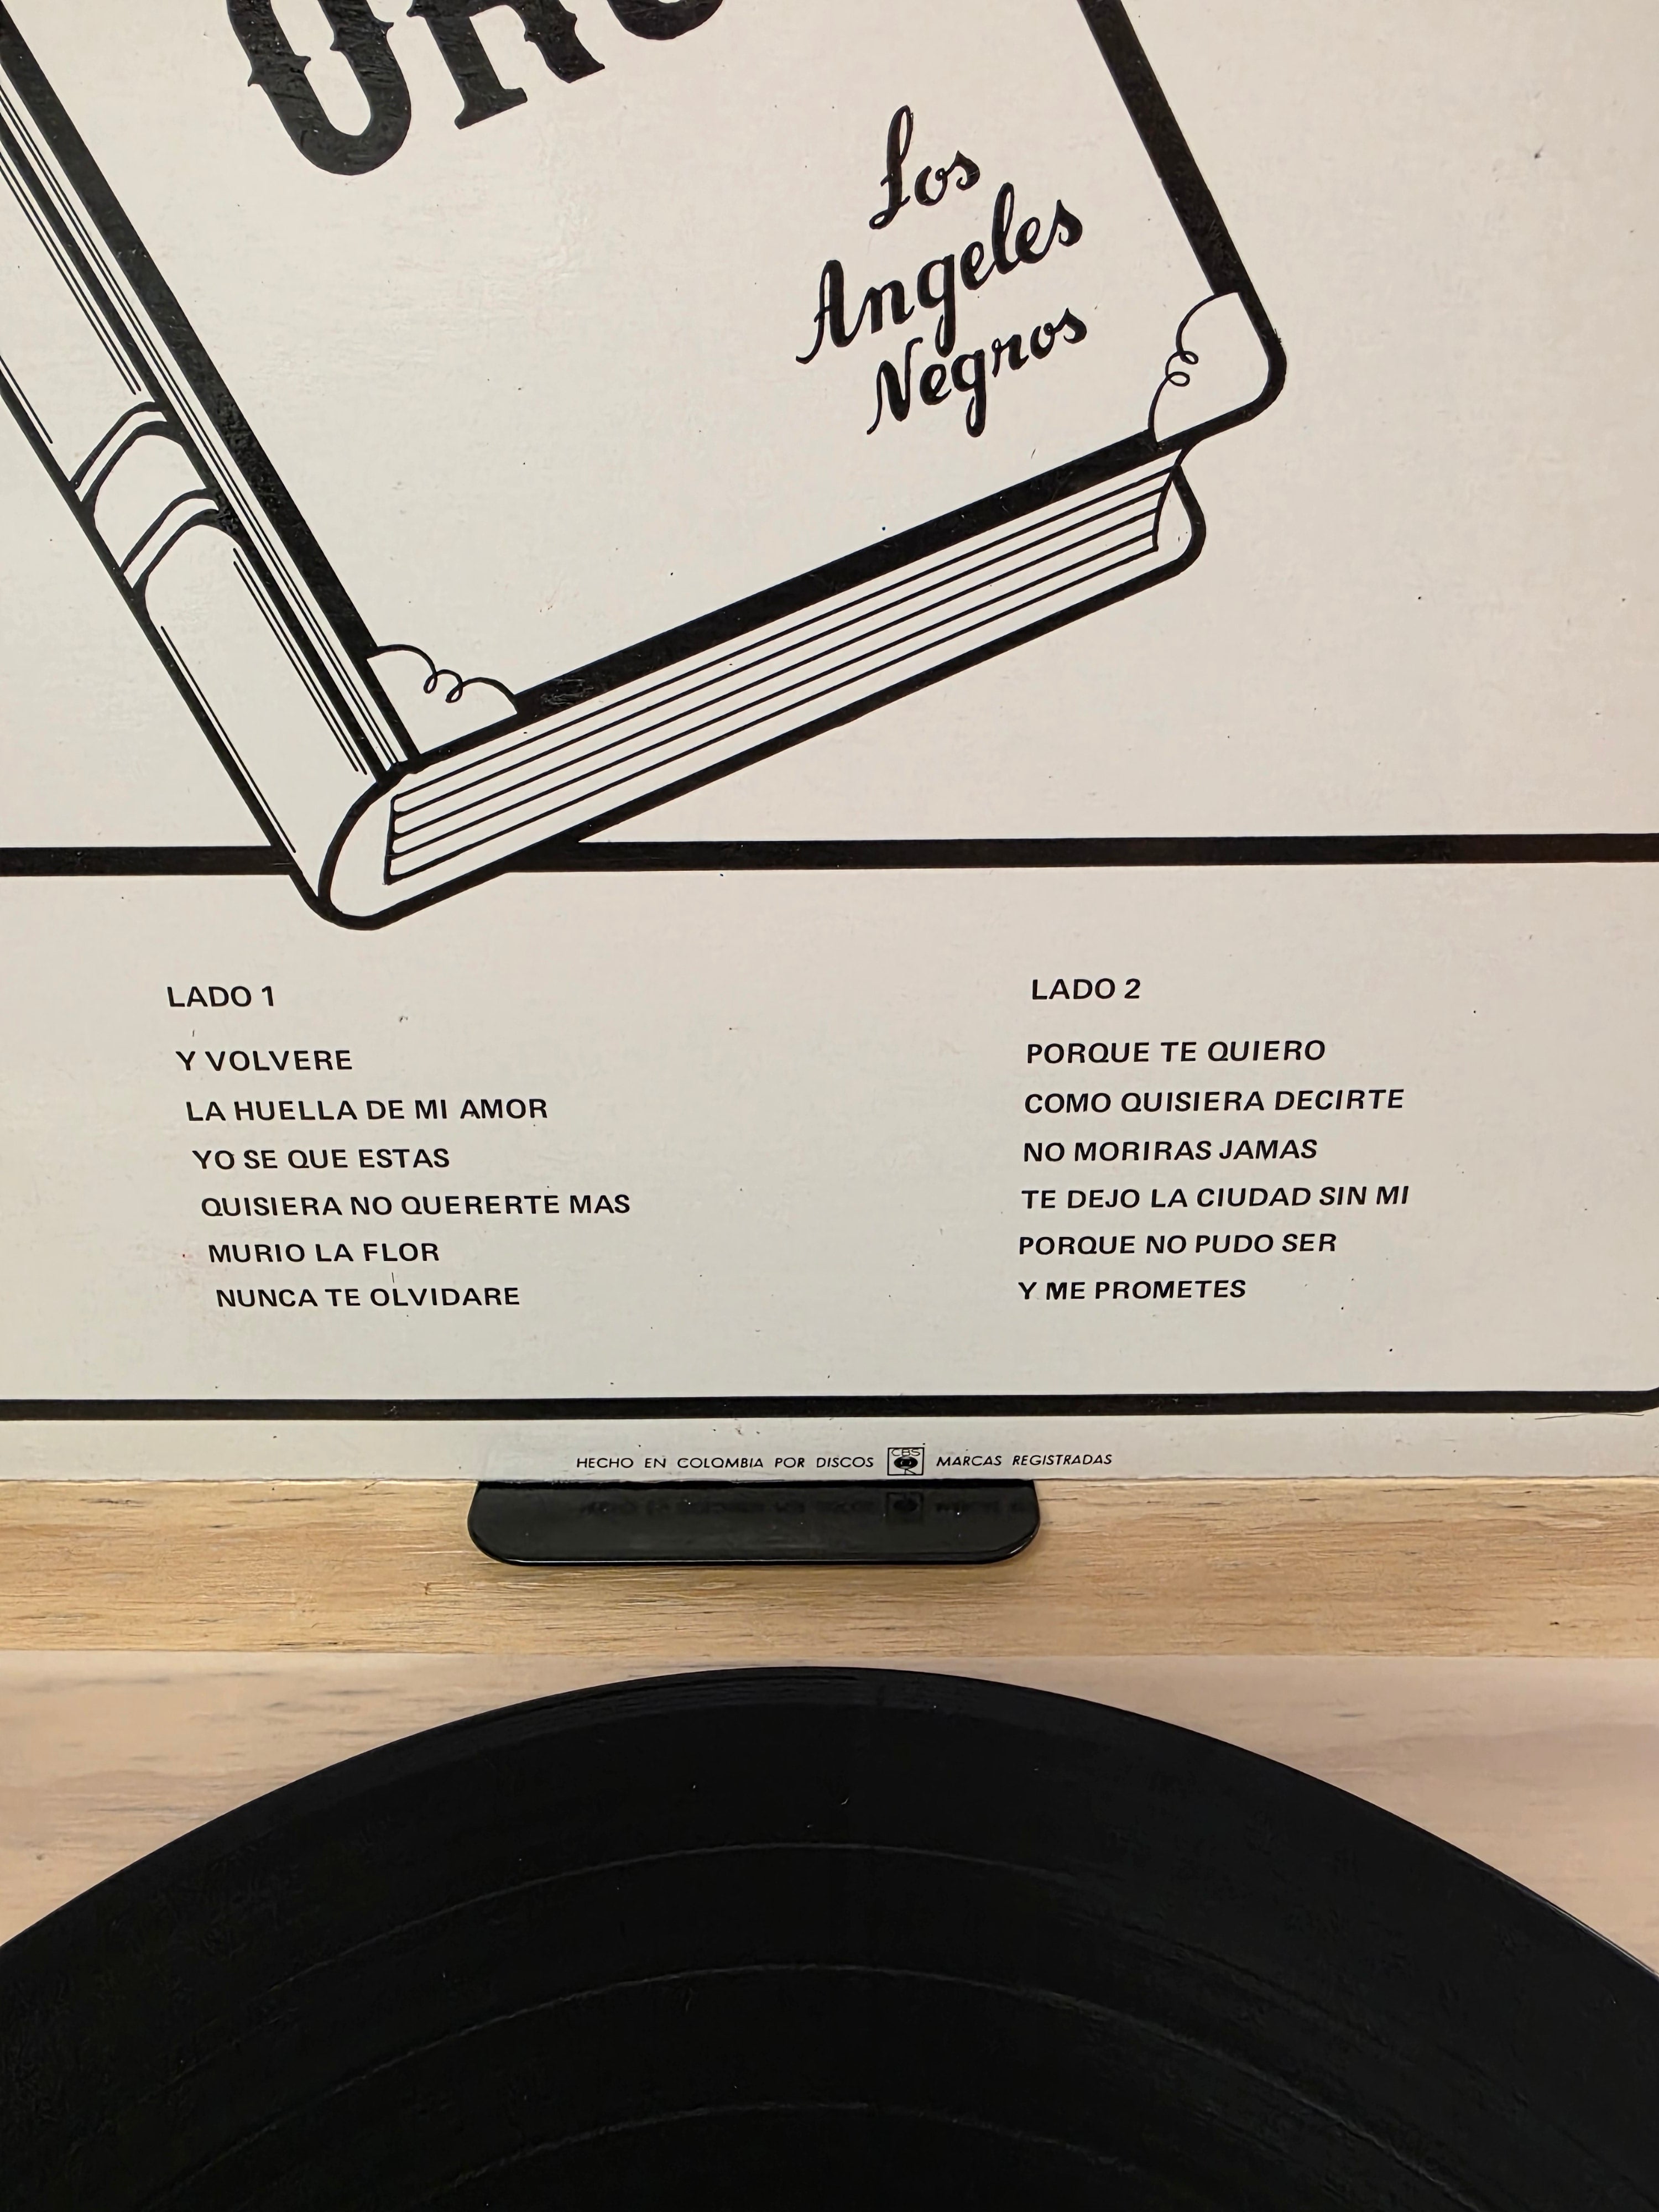 ORO
Los
Angeles
Negros
LADO 1
Y VOLVERE
LA HUELLA DE MI AMOR
YO SE QUE ESTAS
QUISIERA NO QUERERTE MAS
MURIO LA FLOR
NUNCA TE OLVIDARE
LADO 2
PORQUE TE QUIERO
COMO QUISIERA DECIRTE
NO MORIRAS JAMAS
TE DEJO LA CIUDAD SIN MI
PORQUE NO PUDO SER
Y ME PROMETES
HECHO EN COLOMBIA POR DISCOS CBS MARCAS REGISTRADAS